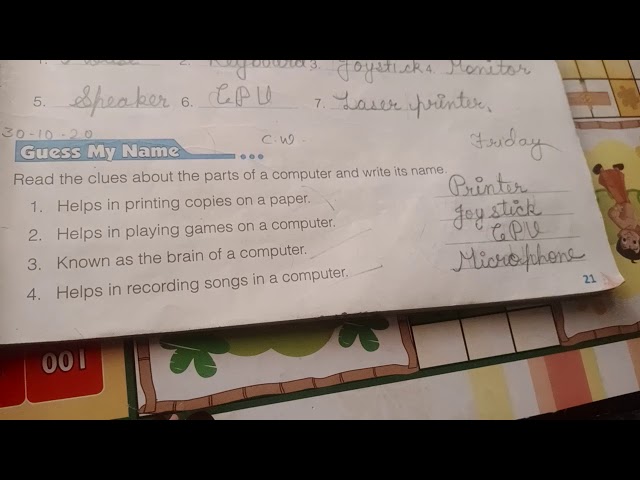 2. Keyboard 3. Joystick 4. Monitor
5. Speaker 6. CPU 7. Laser printer.
30-10-20 C.W. Friday
Guess My Name
Read the clues about the parts of a computer and write its name.
1. Helps in printing copies on a paper. Printer
2. Helps in playing games on a computer. Joystick
3. Known as the brain of a computer. CPU
4. Helps in recording songs in a computer. Microphone
21
001